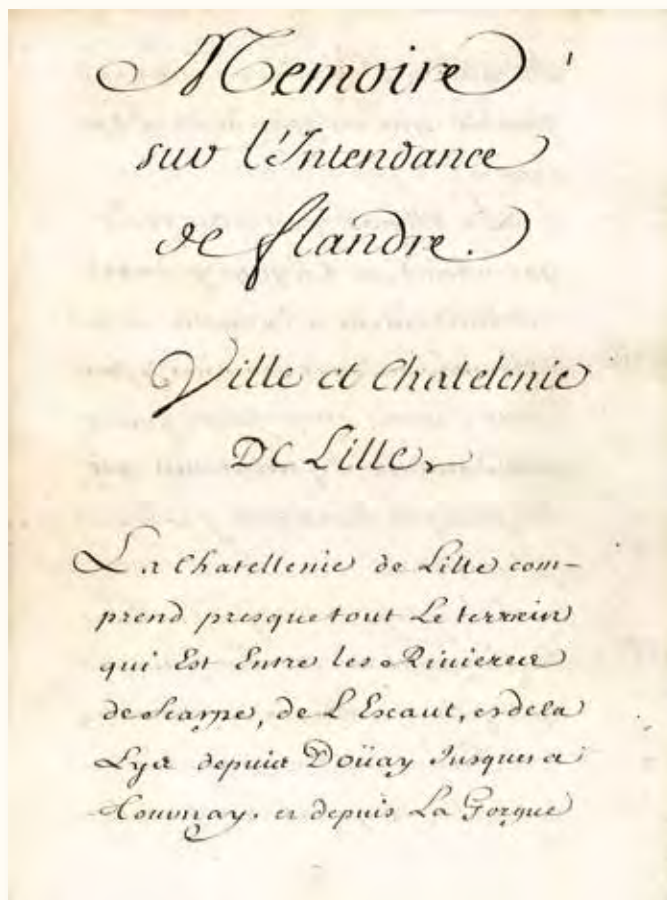 Memoire
sur l'Intendance
de flandre.
Ville et Chatelenie
De Lille
La Chatellenie de Lille com-
prend presque tout Le terrein
qui Est Entre les Rivieres
de Scarpe, de L'Escaut, et de la
Lys depuis Doüay Jusques a
Tournay. et depuis La Gorgue